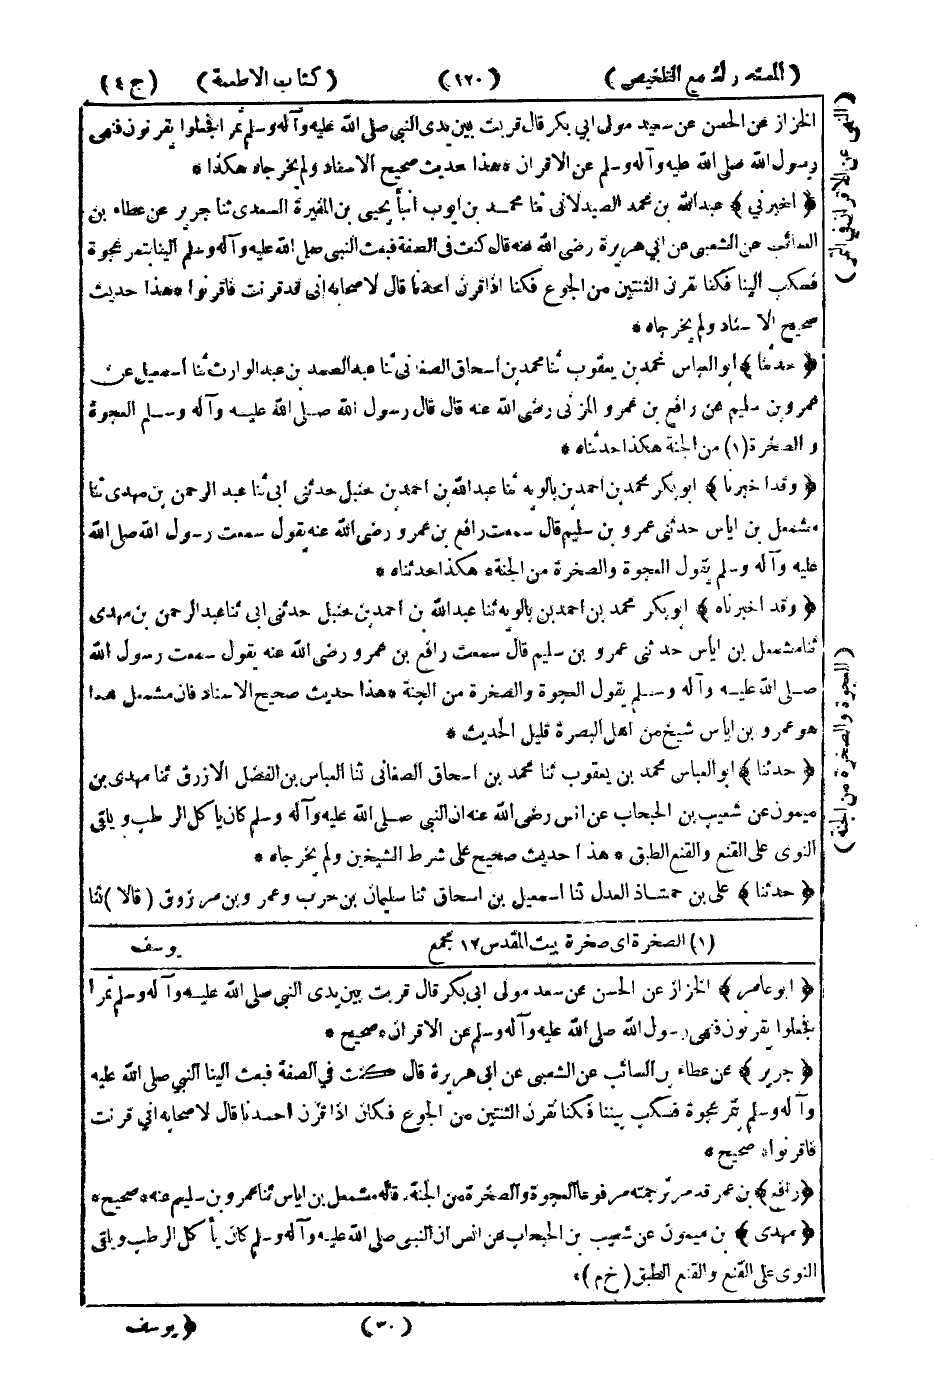 (المستدرك مع التلخيص) (١٢٠) (كتاب الاطعمة) (ج٤)
الخزاز عن الحسن عن سعيد مولى ابي بكر قال قربت بين يدى النبي صلى الله عليه وآله وسلم تمر الجملوا يقرنون فنهى
رسول الله صلى الله عليه وآله وسلم عن الاقران *هذا حديث صحيح الاسناد ولم يخرجاه هكذا *
﴿ اخبرني ﴾ عبدالله بن محمد الصيدلانى ثنا محمد بن ايوب انبأ يحيى بن المغيرة السعدى ثنا جرير عن عطاء بن
السائب عن الشعبى عن ابي هريرة رضى الله عنه قال كنت فى الصفة فبعث النبي صلى الله عليه وآله وسلم الينا بتمر عجوة
فسكب الينا فكنا نقرن الثنتين من الجوع فكنا اذا قرن احدنا قال لاصحابه انى قد قرنت فاقرنوا *هذا حديث
صحيح الاسناد ولم يخرجاه *
﴿ حدثنا ﴾ ابو العباس محمد بن يعقوب ثنا محمد بن اسحاق الصغانى ثنا عبد الصمد بن عبد الوارث ثنا اسمعيل عن
عمرو بن سليم عن رافع بن عمرو المزنى رضى الله عنه قال قال رسول الله صلى الله عليه وآله وسلم العجوة
والصخرة (١) من الجنة هكذا حدثناه *
﴿ وقد اخبرنا ﴾ ابو بكر محمد بن احمد بن بالويه ثنا عبدالله بن احمد بن حنبل حدثنى ابى ثنا عبد الرحمن بن مهدى ثنا
مشمعل بن اياس حدثنى عمرو بن سليم قال سمعت رافع بن عمرو رضى الله عنه يقول سمعت رسول الله صلى الله
عليه وآله وسلم يقول العجوة والصخرة من الجنة* هكذا حدثناه *
﴿ وقد اخبرناه ﴾ ابو بكر محمد بن احمد بن بالويه ثنا عبدالله بن احمد بن حنبل حدثنى ابى ثنا عبد الرحمن بن مهدى
ثنا مشمعل بن اياس حدثنى عمرو بن سليم قال سمعت رافع بن عمرو رضى الله عنه يقول سمعت رسول الله
صلى الله عليه وآله وسلم يقول العجوة والصخرة من الجنة *هذا حديث صحيح الاسناد فان مشمعل هذا
هو عمرو بن اياس شيخ من اهل البصرة قليل الحديث *
﴿ حدثنا ﴾ ابو العباس محمد بن يعقوب ثنا محمد بن اسحاق الصغانى ثنا العباس بن الفضل الازرق ثنا مهدى بن
ميمون عن شعيب بن الحبحاب عن انس رضى الله عنه ان النبي صلى الله عليه وآله وسلم كان ياكل الرطب ويلقى
النوى على القنع والقنع الطبق * هذا حديث صحيح على شرط الشيخين ولم يخرجاه *
﴿ حدثنا ﴾ على بن حمشاذ العدل ثنا اسمعيل بن اسحاق ثنا سليمان بن حرب وعمرو بن مرزوق (قالا) ثنا
(١) الصخرة اى صخرة بيت المقدس ١٢ مجمع يوسف
﴿ ابو عامر ﴾ الخزاز عن الحسن عن سعد مولى ابى بكر قال قربت بين يدى النبي صلى الله عليه وآله وسلم تمرا
فجعلوا يقرنون فنهى رسول الله صلى الله عليه وآله وسلم عن الاقران* صحيح *
﴿ جرير ﴾ عن عطاء بن السائب عن الشعبى عن ابى هريرة قال كنت في الصفة فبعث الينا النبي صلى الله عليه
وآله وسلم بتمر عجوة فسكب بيننا فكنا نقرن الثنتين من الجوع فكان اذا قرن احدنا قال لاصحابه اني قرنت
فاقرنوا* صحيح *
﴿رافع﴾ بن عمر قد مر ترجمته مرفوعا العجوة والصخرة من الجنة. قاله مشمعل بن اياس ثنا عمرو بن سليم عنه* صحيح*
﴿ مهدى ﴾ بن ميمون عن شعيب بن الحبحاب عن انس ان النبى صلى الله عليه وآله وسلم كان يأكل الرطب ويلقى
النوى على القنع والقنع الطبق (خ م) *
(٣٠) ﴿ يوسف
(النهى عن الاقران في التمر)
(العجوة والصخرة من الجنة)